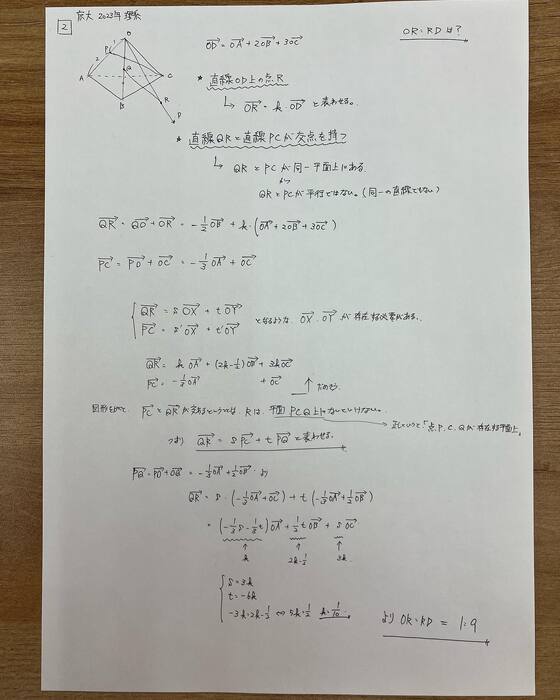 京大 2023年 理系
2
O
P
1
2
Q
A
C
B
R
D
→OD = →OA + 2→OB + 3→OC
OR:RD は?
★ 直線OD上の点R
↳ →OR = k→OD と表わせる。
★ 直線QRと直線PCが交点を持つ
↳ QRとPCが同一平面上にある
かつ
QRとPCが平行ではない。(同一の直線でもない)
→QR = →QO + →OR = -1/2→OB + k・(→OA + 2→OB + 3→OC)
→PC = →PO + →OC = -1/3→OA + →OC
{ →QR = s→OX + t→OY
→PC = s'→OX + t'→OY
となるような →OX、→OY が存在する必要がある。
→QR = k→OA + (2k-1/2)→OB + 3k→OC
→PC = -1/3→OA + →OC
図形を
→PCと→QRが交わるということは、Rは、平面PCQ上に
正しくいうと「点P、C、Qが存在する平面上」
つまり →QR = s→PC + t→PQ と表わせる。
→PQ = →PO + →OQ = -1/3→OA + 1/2→OB より
→QR = s・(-1/3→OA + →OC) + t(-1/3→OA + 1/2→OB)
= (-1/3s - 1/3t)→OA + 1/2t→OB + s→OC
↑ ↑ ↑
k 2k-1/2 3k
{ s = 3k
t = -6k
-3k = 2k-1/2 ⇔ 5k = 1/2 k = 1/10
より OR:RD = 1:9